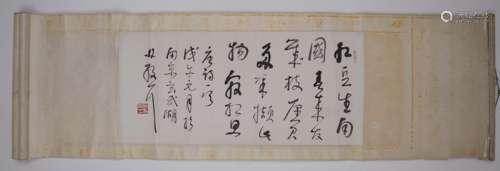 红豆生南
國春来发
幾枝愿君
多采撷此
物最相思
唐诗一首
戊午元月於
南京玄武湖
林散耳